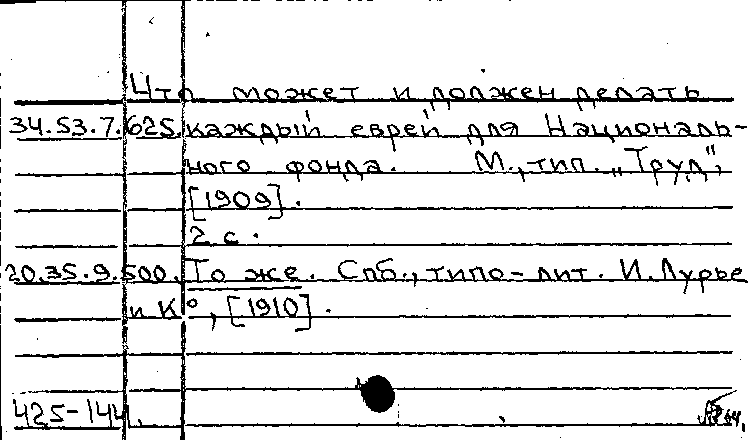 Что может и должен делать
34.53.7.625. каждый еврей для Националь-
ного фонда. М., тип. „Труд",
[1909].
2 с.
20.35.9.500. То же. Спб., типо-лит. И. Лурье
и К°, [1910].
425-144.